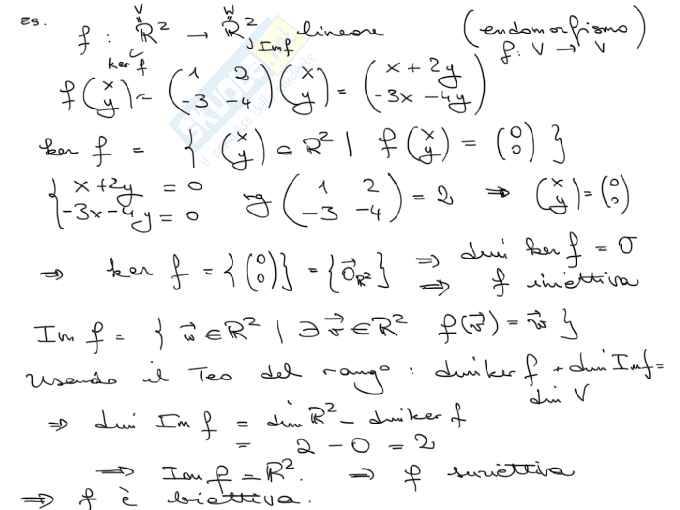 Es. f : ℝ² → ℝ² lineare (endomorfismo)
V W
ker f Im f f: V → V
f(x y) = (1 2 -3 -4)(x y) = (x + 2y -3x -4y)
ker f = { (x y) ∈ ℝ² | f(x y) = (0 0) }
{ x + 2y = 0 -3x - 4y = 0 rg (1 2 -3 -4) = 2 ⇒ (x y) = (0 0)
⇒ ker f = {(0 0)} = {0⃗ℝ²} ⇒ dim ker f = 0
⇒ f iniettiva
Im f = { w⃗ ∈ ℝ² | ∃ v⃗ ∈ ℝ² f(v⃗) = w⃗ }
Usando il Teo del rango : dim ker f + dim Im f =
dim V
⇒ dim Im f = dim ℝ² - dim ker f
= 2 - 0 = 2
⇒ Im f = ℝ². ⇒ f suriettiva
⇒ f è biettiva.